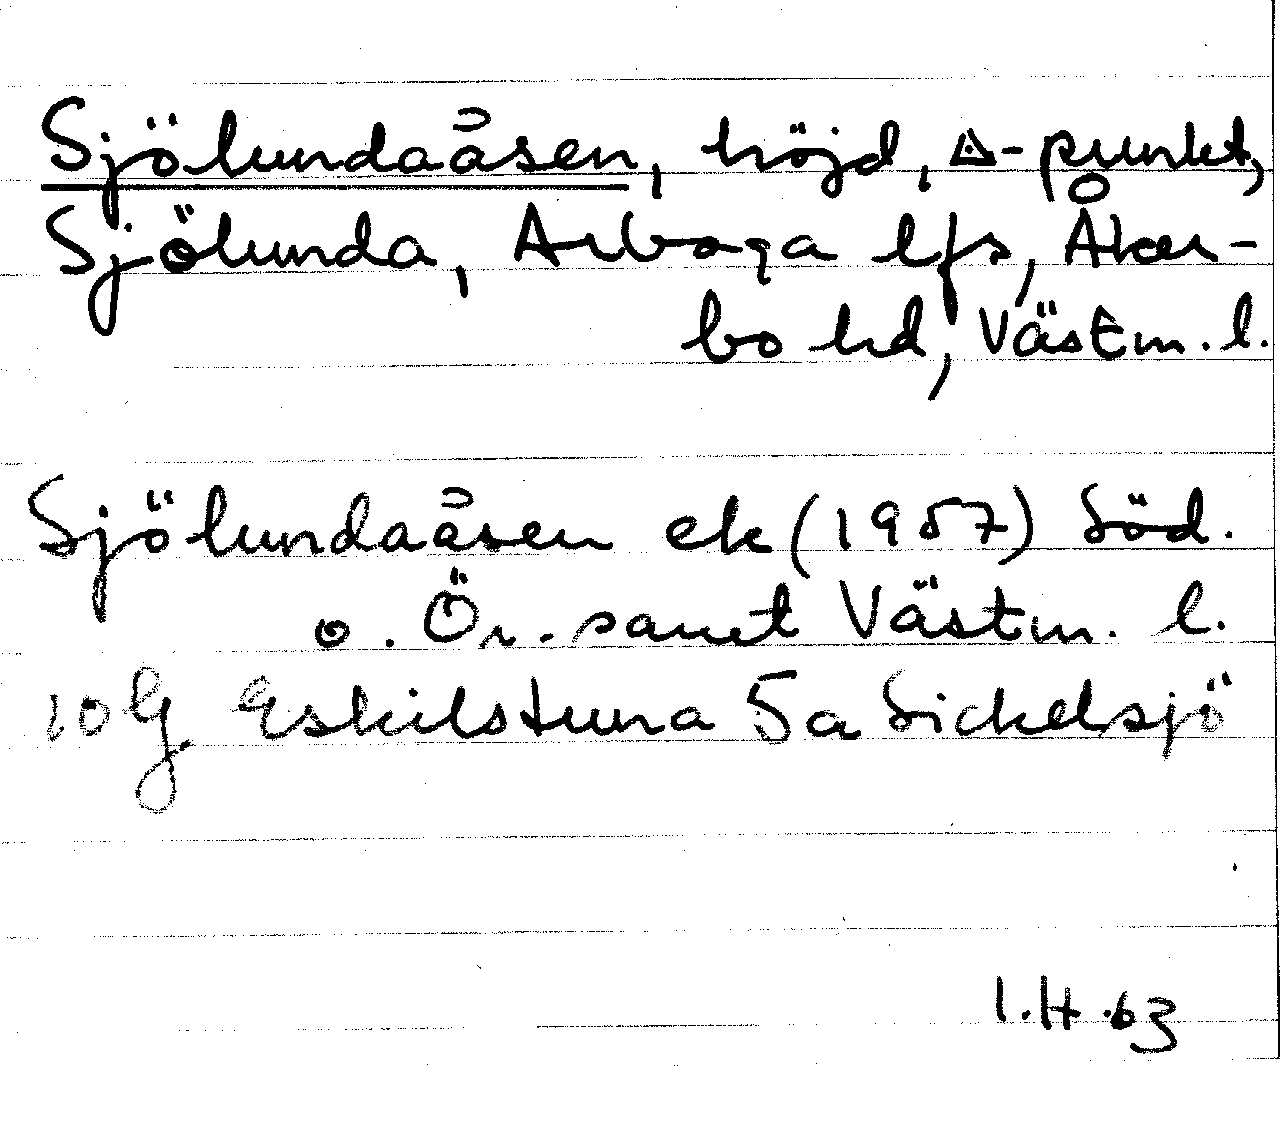 Sjölundaåsen, höjd, △-punkt,
Sjölunda, Arboga lfs, Åker-
bo hd, Västm. l.
Sjölundaåsen ek (1957) Söd.
o. Ör. samt Västm. l.
10G Eskilstuna 5a Sickelsjö
I.H.63